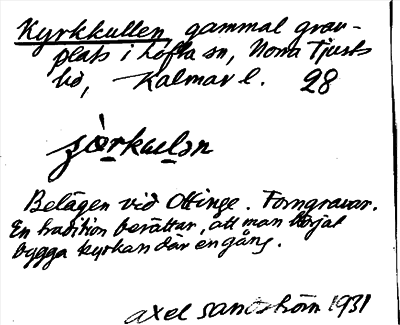 Kyrkkullen gammal grav-
plats i Lofta sn, Norra Tjusts
hd, Kalmar l. 28
Belägen vid Ottinge. Forngravar.
En tradition berättar, att man börjat
bygga kyrkan där en gång.
Axel Sandström 1931